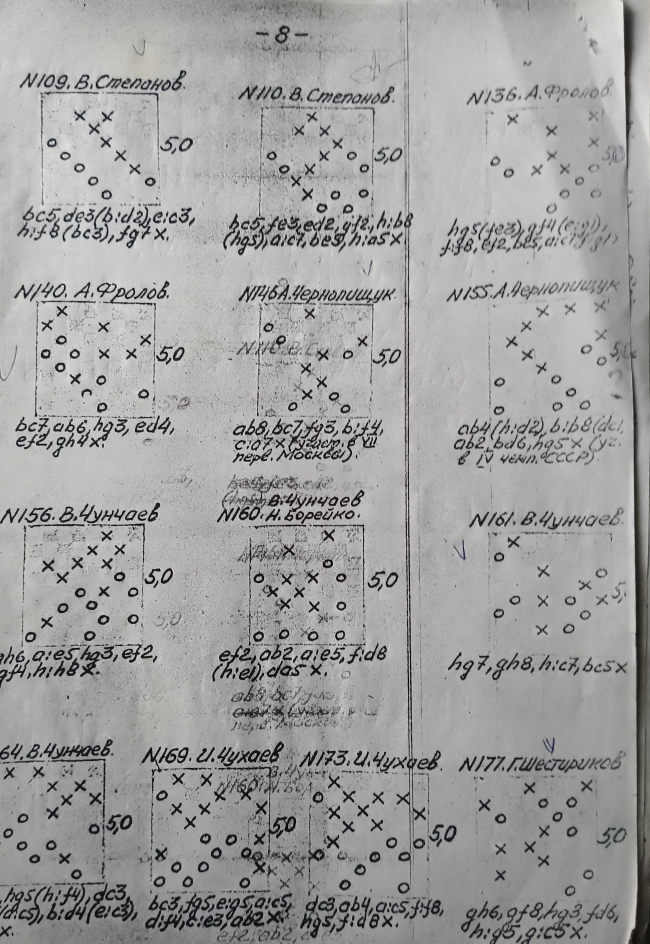 -8-
N109. В.Степанов.
5,0
bc5, de3(b:d2), e:c3,
h:f8(bc3), fg7x.
N110. В.Степанов.
5,0
bc5, fe3, ed2, gf2, h:b8
(hg5), a:c7, be3, h:a5x.
N136. А.Фролов.
5,0
hg5(fe3), gf4(e:g1),
N140. А.Фролов.
5,0
bc7, ab6, hg3, ed4,
ef2, gh4x.
N146 А.Чернопищук
5,0
ab8, bc7, fg3, b:f4,
c:a7x (участ. в VII
перв. Москвы).
N155. А.Чернопищук
5,0
ab4(h:d2), b:b8(dc1,
ab2, bd6, hg5x (уч.
в IV чемп. СССР).
N156. В.Чунчаев
5,0
gh6, a:e5, hg3, ef2,
gf4, h:h8x.
В.Чунчаев
N160. Н.Борейко.
5,0
ef2, ab2, a:e5, f:d8
(h:e1), da5x.
N161. В.Чунчаев.
5,
hg7, gh8, h:c7, bc5x
64. В.Чунчаев.
5,0
hg5(h:f4), dc3,
(d:c5), b:d4(e:c3),
x.
N169. И.Чухаев
5,0
bc3, fg5, e:g5, a:c5,
d:f4, c:e3, ab2x.
N173. И.Чухаев.
5,0
dc3, ab4, a:c5, f:f8,
hg5, f:d8x.
N177. Г.Шестириков
5,0
gh6, gf8, hg3, fd6,
h:g5, g:c5x.